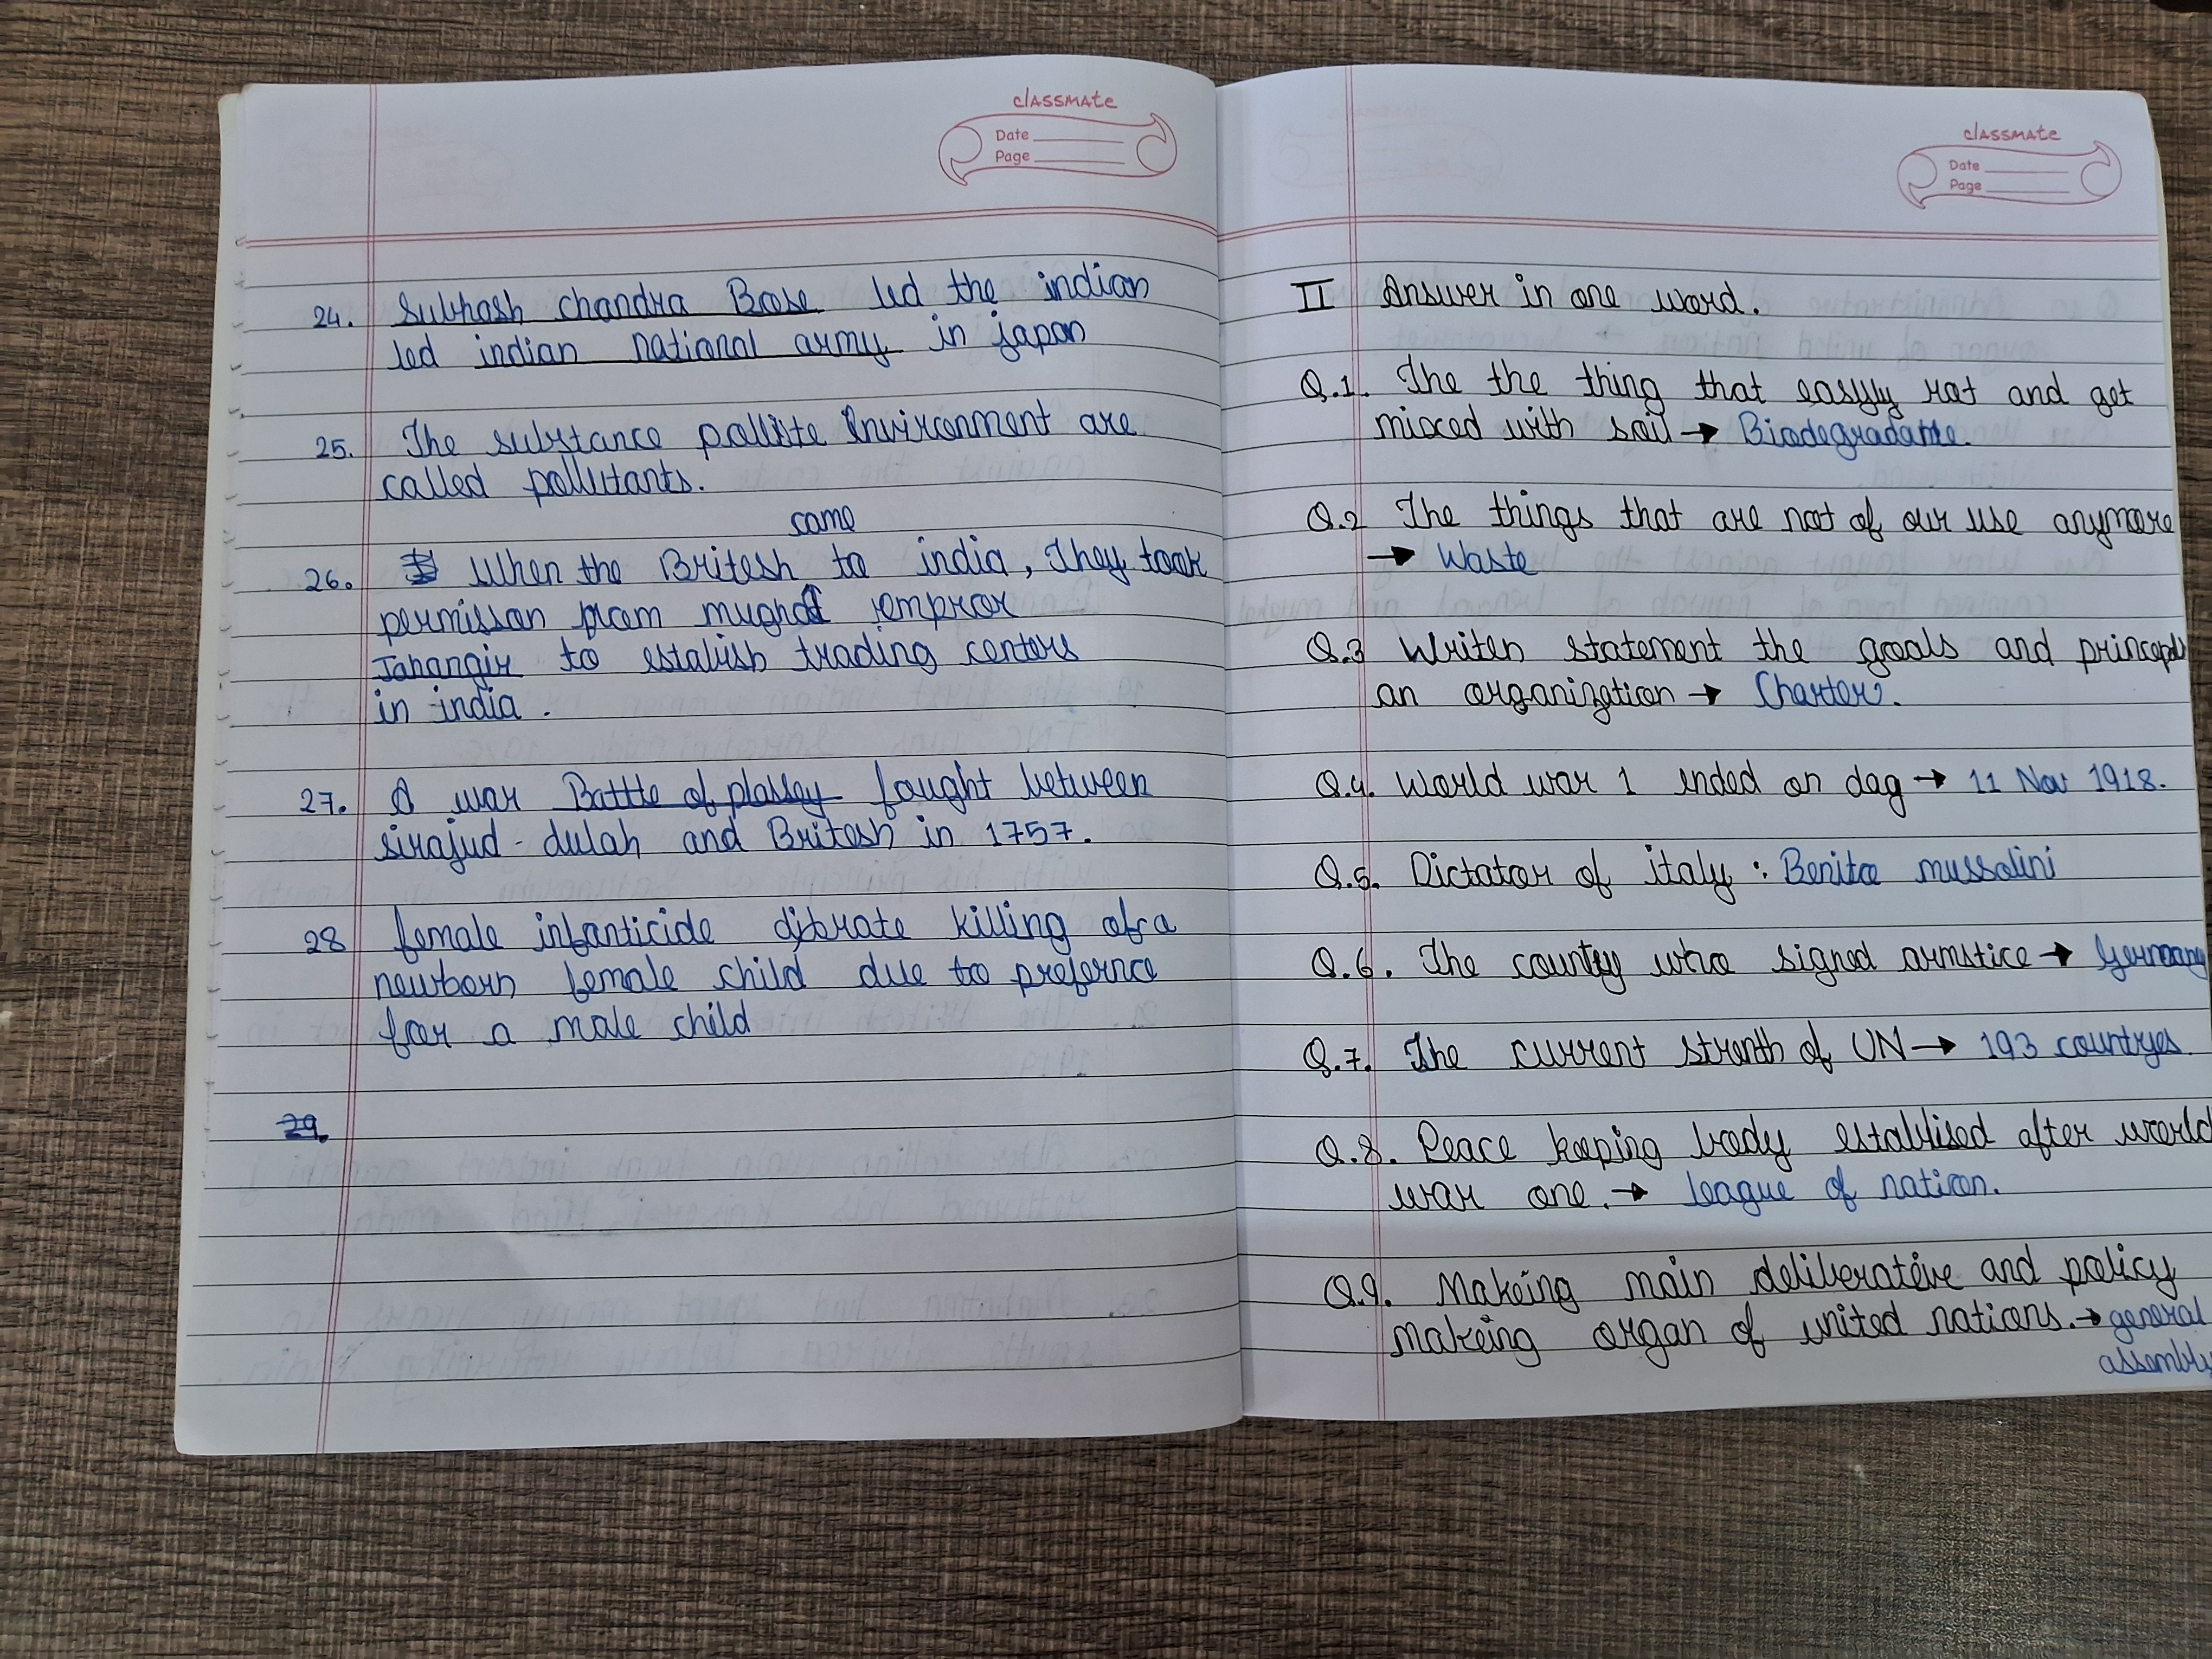 classmate
Date
Page
24. Subhash chandra Bose led the indian
led indian national army in japan
25. The substance pollute Environment are
called pollutants.
came
26. When the Britesh to india, They took
permisson from mughal empror
Jahangir to estalish trading centers
in india.
27. A war Battle of plassey fought between
sirajud-dulah and Britesh in 1757.
28 female infanticide killing of a
newborn female child due to prefernce
for a male child
29.
classmate
Date
Page
II Answer in one word.
Q.1. The the thing that easyly rot and get
mixed with soil → Biodegradable.
Q.2 The things that are not of our use anymore
→ Waste
Q.3 Writen statement the goals and
an organization → Charter.
Q.4. World war 1 ended on day → 11 Nov 1918.
Q.5. Dictator of italy : Benito mussolini
Q.6. The country who signed armstice → Germany
Q.7. The current strenth of UN → 193 countryes
Q.8. Peace keeping body establised after world
war one. → league of nation.
Q.9. Makeing main deliberative and policy
makeing organ of united nations. → general
assembly